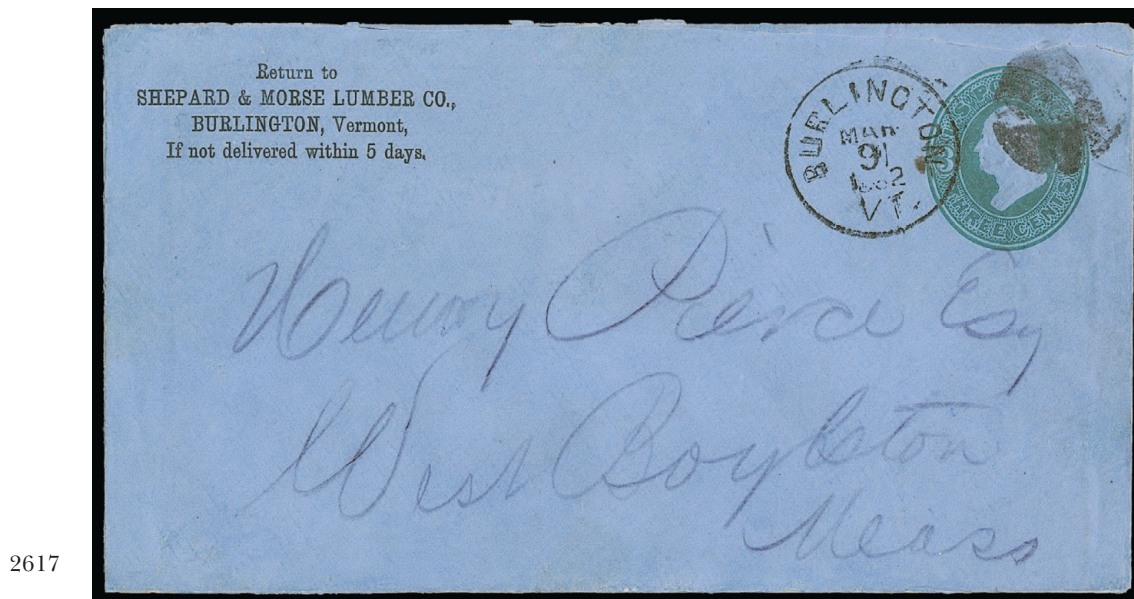 Return to
SHEPARD & MORSE LUMBER CO.,
BURLINGTON, Vermont,
If not delivered within 5 days.
BURLINGTON
MAR
VT.
THREE CENTS
Henry Pierce Esq
West Boylston
Mass
2617